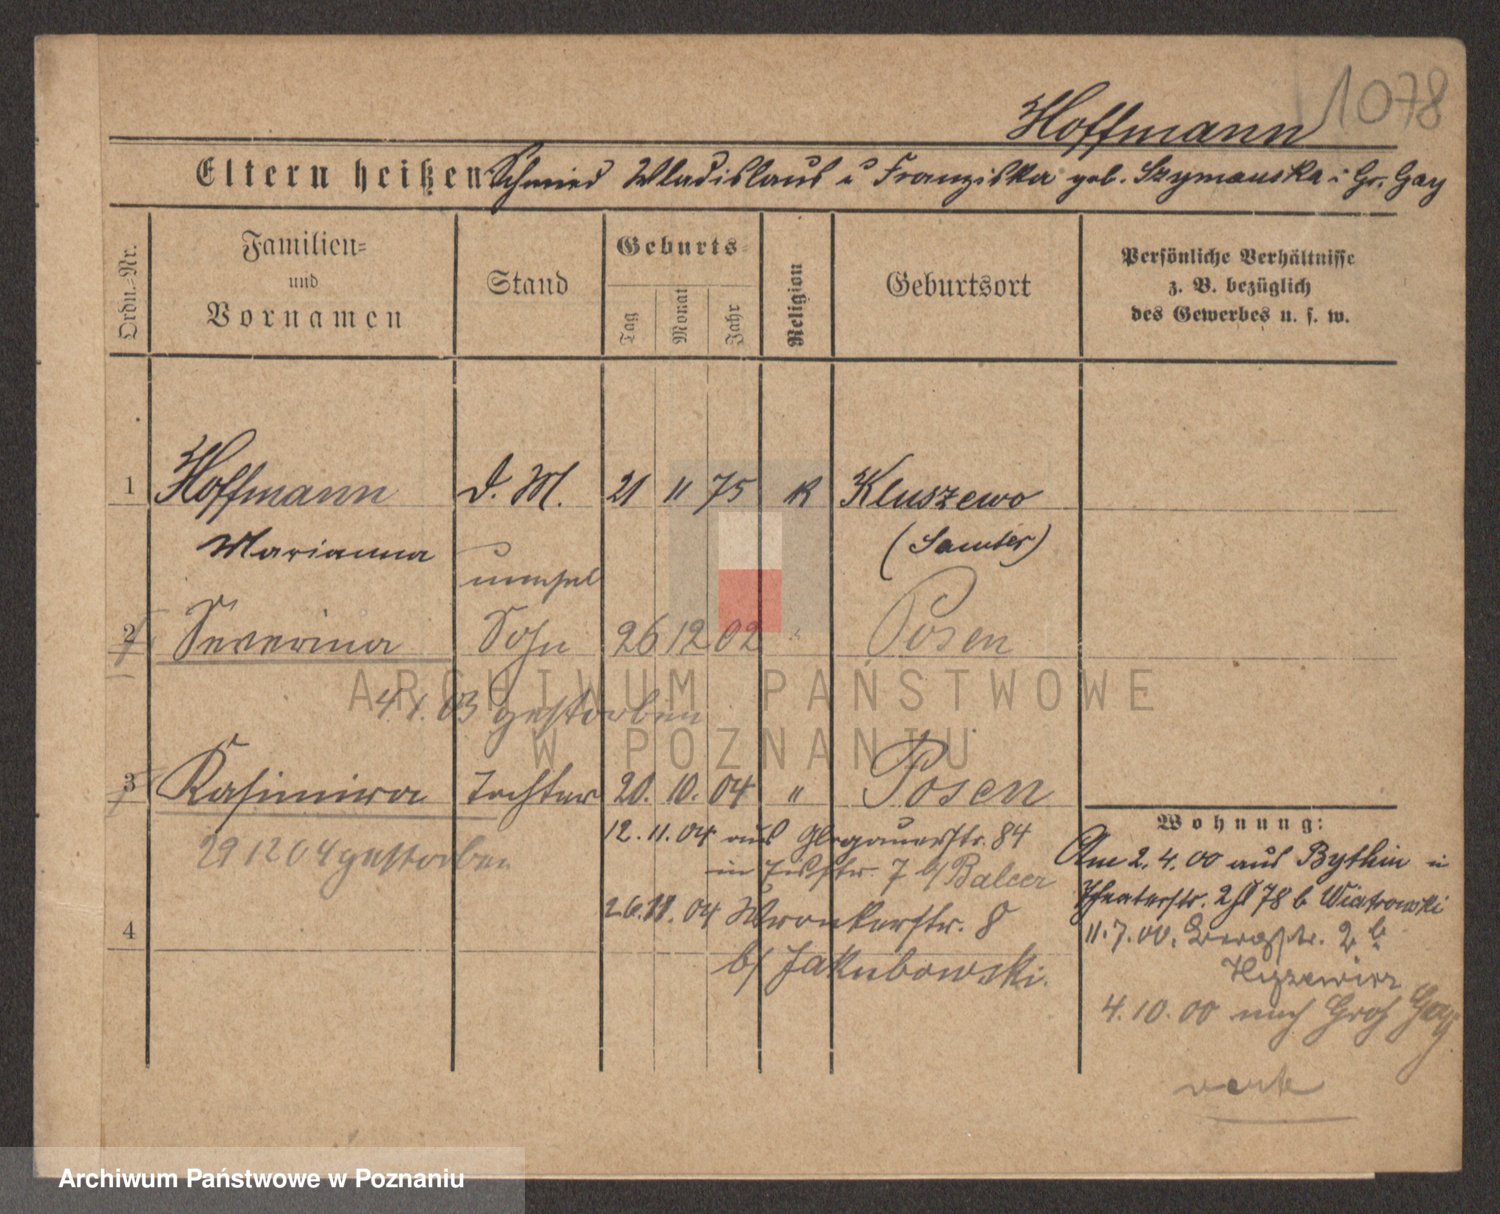 1078
Hoffmann
Eltern heißen Schmied Wladislaus u Franziska geb. Szymanska i Gr. Gay
Ordn.-Nr.
Familien-
und
Vornamen
Stand
Geburts-
Tag
Monat
Jahr
Religion
Geburtsort
Persönliche Verhältnisse
z. B. bezüglich
des Gewerbes u. s. w.
1 Hoffmann d. M. 21 11 75 K Kluszewo
Marianna (Samter)
2 Severina Sohn 26 12 02 " Posen
4.1.03 gestorben
3 Kasimira Tochter 20. 10. 04 " Posen
29 12 04 gestorben
12. 11. 04 aus Glogauerstr. 84
in 7 b/ Balcer
26.11.04 Wronkerstr. 8
b/ Jakubowski.
4
Wohnung:
Am 2. 4. 00 aus Bythin in
Theaterstr. 2 78 b Wiatrowski
11. 7. 00. Bergstr. 2 b
4. 10. 00 nach Groß Gay
ARCHIWUM PAŃSTWOWE
W POZNANIU
Archiwum Państwowe w Poznaniu